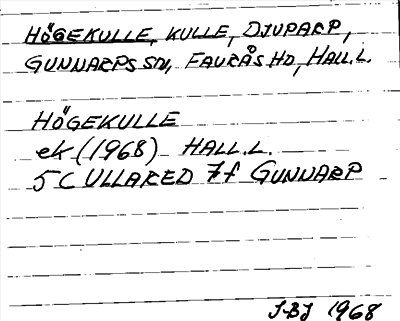 HÖGEKULLE, KULLE, DJUPARP,
GUNNARPS SN, FAURÅS HD, HALL.L.
HÖGEKULLE
ek (1968) HALL.L.
5C ULLARED 7f GUNNARP
J-BJ 1968